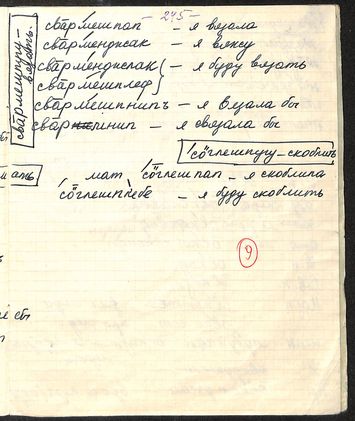 - 245 -
свäрмешпуру-вязать.
свäрмешпап - я вязала
свäрменджак - я вяжу
свäрменджпак - я буду вязать
свäрмешплед
свäрмешпнипъ - я вязала бы
свäрнип - я связала бы
сöглешпуру - скоблить
мат сöглешпап - я скоблила
сöглешпкебе - я буду скоблить
9